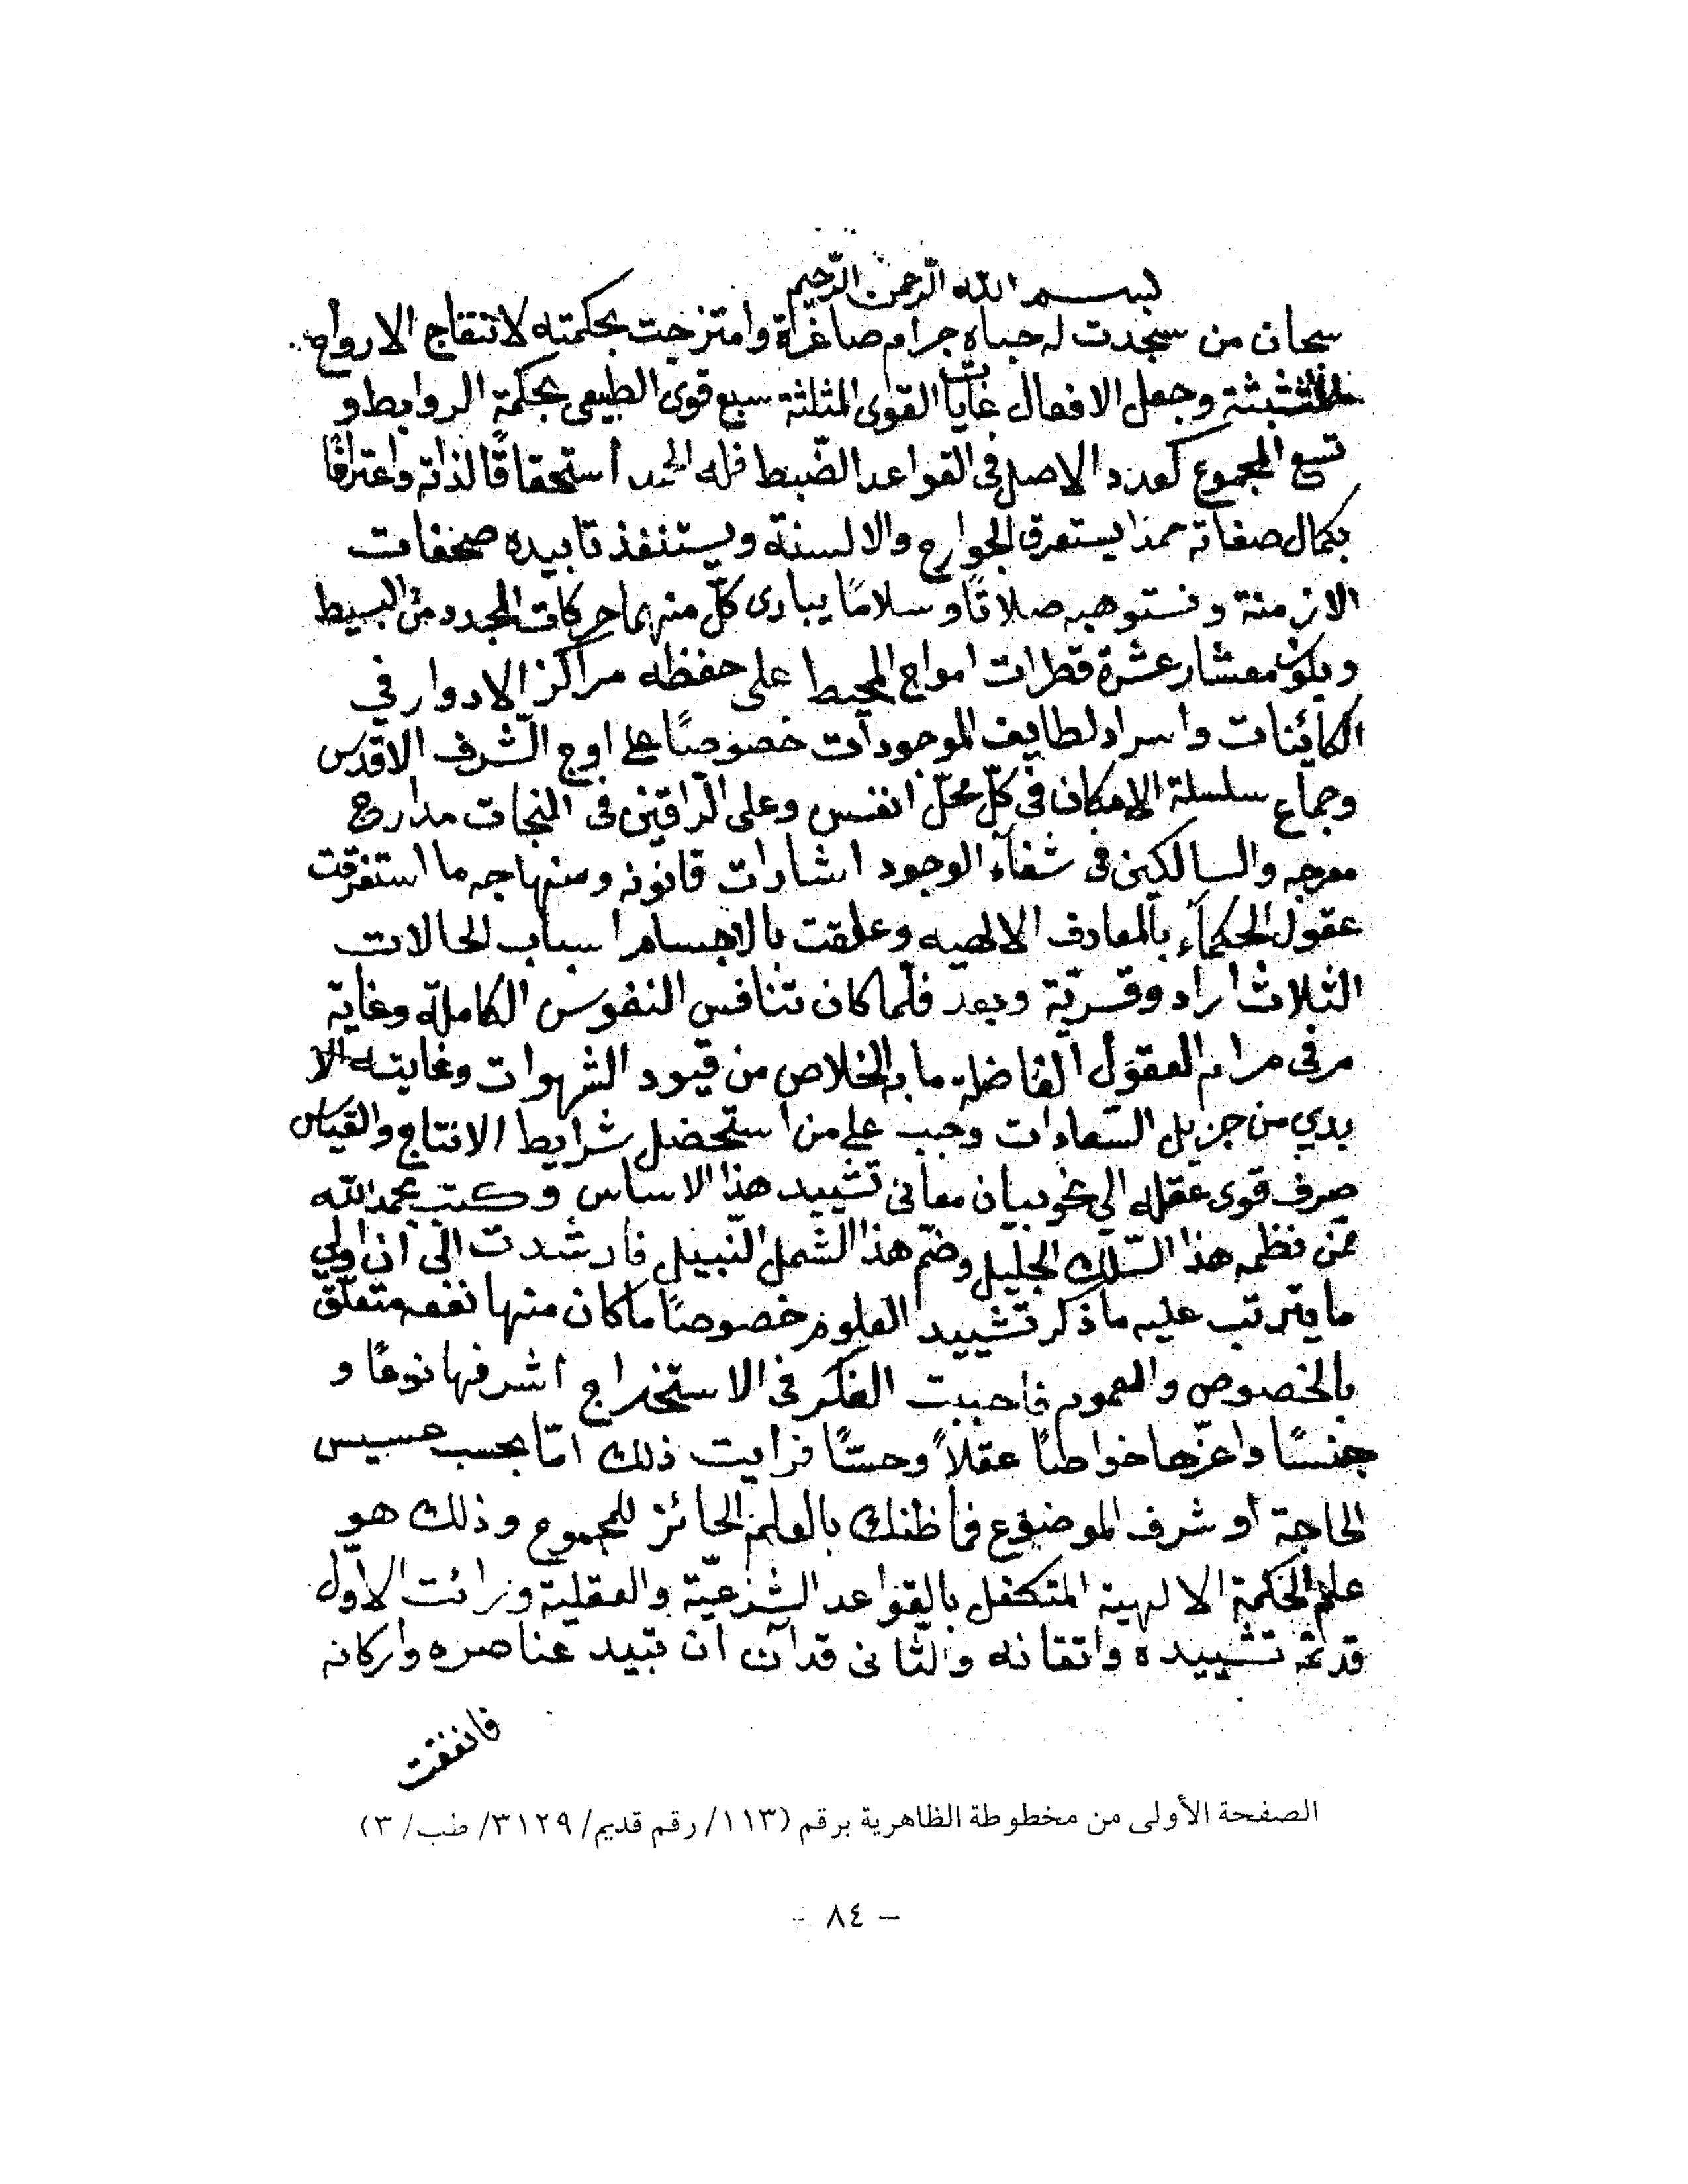 بسم الله الرحمن الرحيم
سبحان من سجدت له جباه جرام صاغرة وامتزجت بحكمته لانتقاج الارواح
وجعل الافعال غايات القوى المثلثة سبع قوى الطبيعى بحكمة الروابط و
تسع المجموع كعدد الاصل فى القواعد الضبط فله الحمد استحقاقًا لذاته واعترافًا
بكمال صفاته حمدا يستغرق الجوارح والالسنة ويستنفذ تابيده صحفات
الازمنة ونستوهبه صلاتًا وسلامًا يبارى كلّ منهما حركات المجدد من البسيط
ويكون معشار عشرة قطرات امواج المحيط على حفظه مراكز الادوار في
الكائنات واسرار لطايف الموجودات خصوصًا على اوج الشّرف الاقدس
وجماع سلسلة الامكان فى كلّ محلّ انفس وعلى الرّاقين فى المنجات مدارج
معرجه والسالكين فى شفآء الوجود اشارات قانونه ومنهاجه ما استغرقت
عقول الحكمآء بالمعارف الالهيه وعلقت بالاجسام اسباب الحالات
الثلاث وبعد فلّما كان تنافس النفوس الكاملة وغاية
مرقى مرام العقول الفاضلة ما به الخلاص من قيود الشهوات وغايته الا
بدي من جزيل السّعادات وجب على من استحضل شرايط الانتاج والقياس
صرف قوى عقله الي نحو بيان معانى تشييد هذا الاساس وكنت بحمد الله
ممّن نظمه هذا السّلك الجليل وضمّ هذا الشمل النّبيل فارشدت الى ان اولي
ما يترتب عليه ما ذكر تشييد العلوم خصوصًا ما كان منها نفعه متعلّق
بالخصوص والعموم فاحببت الفكر فى الاستخراج اشرفها نوعًا و
جنسًا واعزّها خواطنًا عقلاً وحسًّا فرايت ذلك امّا بحسب حسيس
الحاجة أو شرف الموضوع فما ظنك بالعلم الحائز للمجموع وذلك هو
علم الحكمة الالهية المتكفل بالقواعد الشرعيّة والعقلية ورائت الاوّل
قد تم تشييده واتقانه والثانى قد آن ان تبيد عناصره واركانه
فانفقت
الصفحة الأولى من مخطوطة الظاهرية برقم (١١٣/ رقم قديم/ ٣١٢٩/ طب/ ٣)
- ٨٤ -